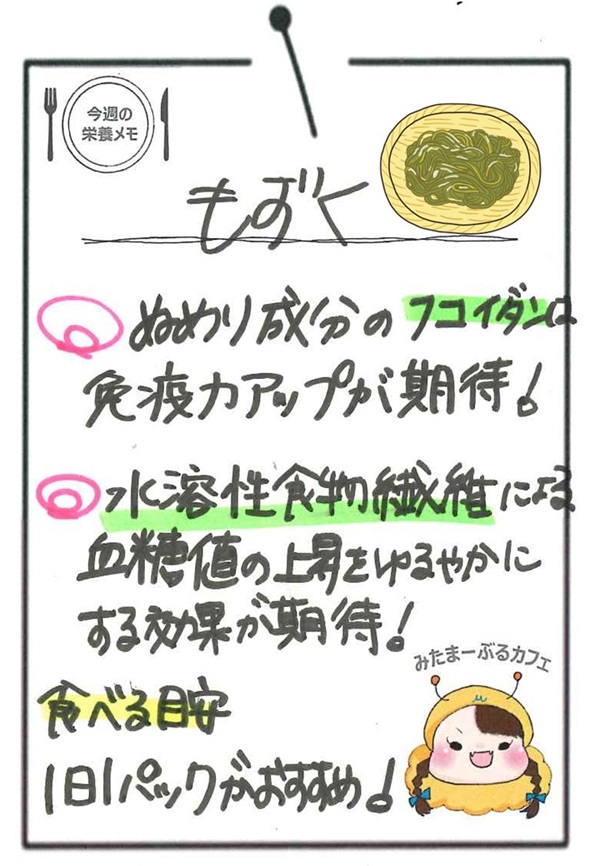 今週の
栄養メモ
もずく
ぬめり成分のフコイダンは
免疫力アップが期待!
水溶性食物繊維による
血糖値の上昇をゆるやかに
する効果が期待!
食べる目安
1日1パックがおすすめ!
みたまーぶるカフェ